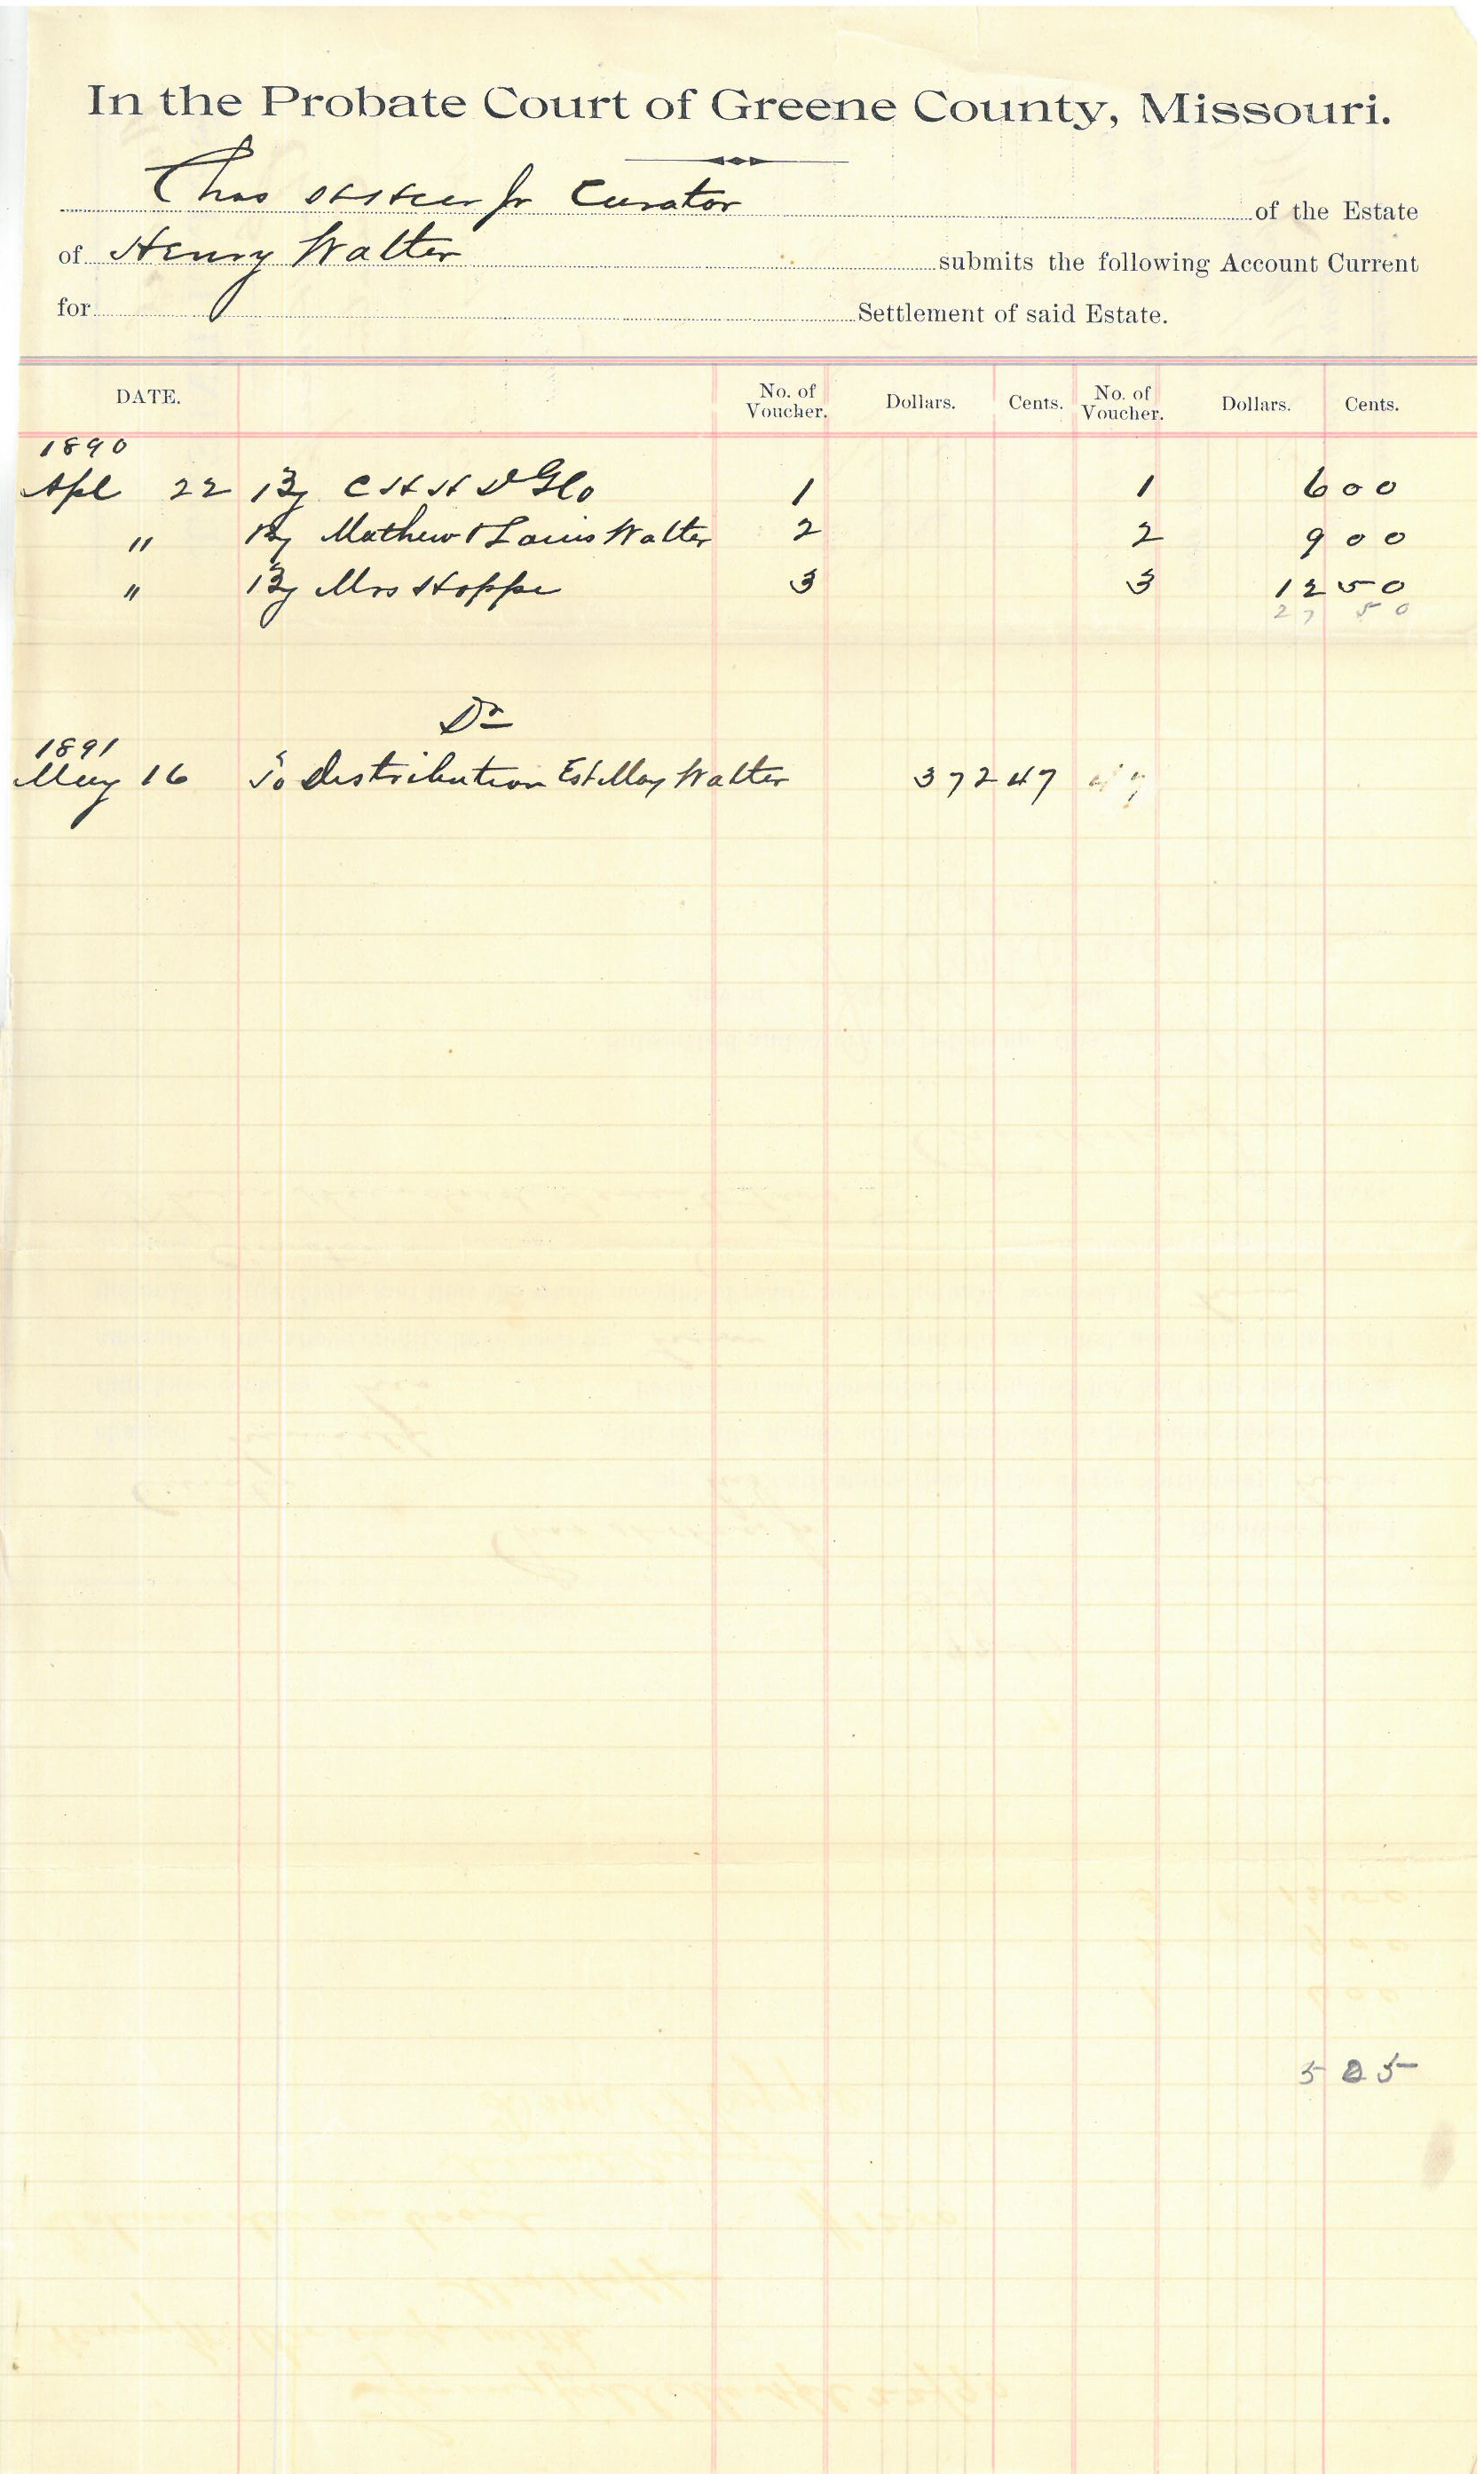 In the Probate Court of Greene County, Missouri.
Chas Jr Curator of the Estate
of Henry Walter submits the following Account Current
for Settlement of said Estate.
DATE. No. of Voucher. Dollars. Cents. No. of Voucher. Dollars. Cents.
1890
Apl 22 By C H H 1 1 6 00
" By Mathew & Louis Walter 2 2 9 00
" By Mrs Hoppe 3 3 12 50
27 50
Dr
1891
May 16 To distribution Est May Walter 372 47 47
5 05